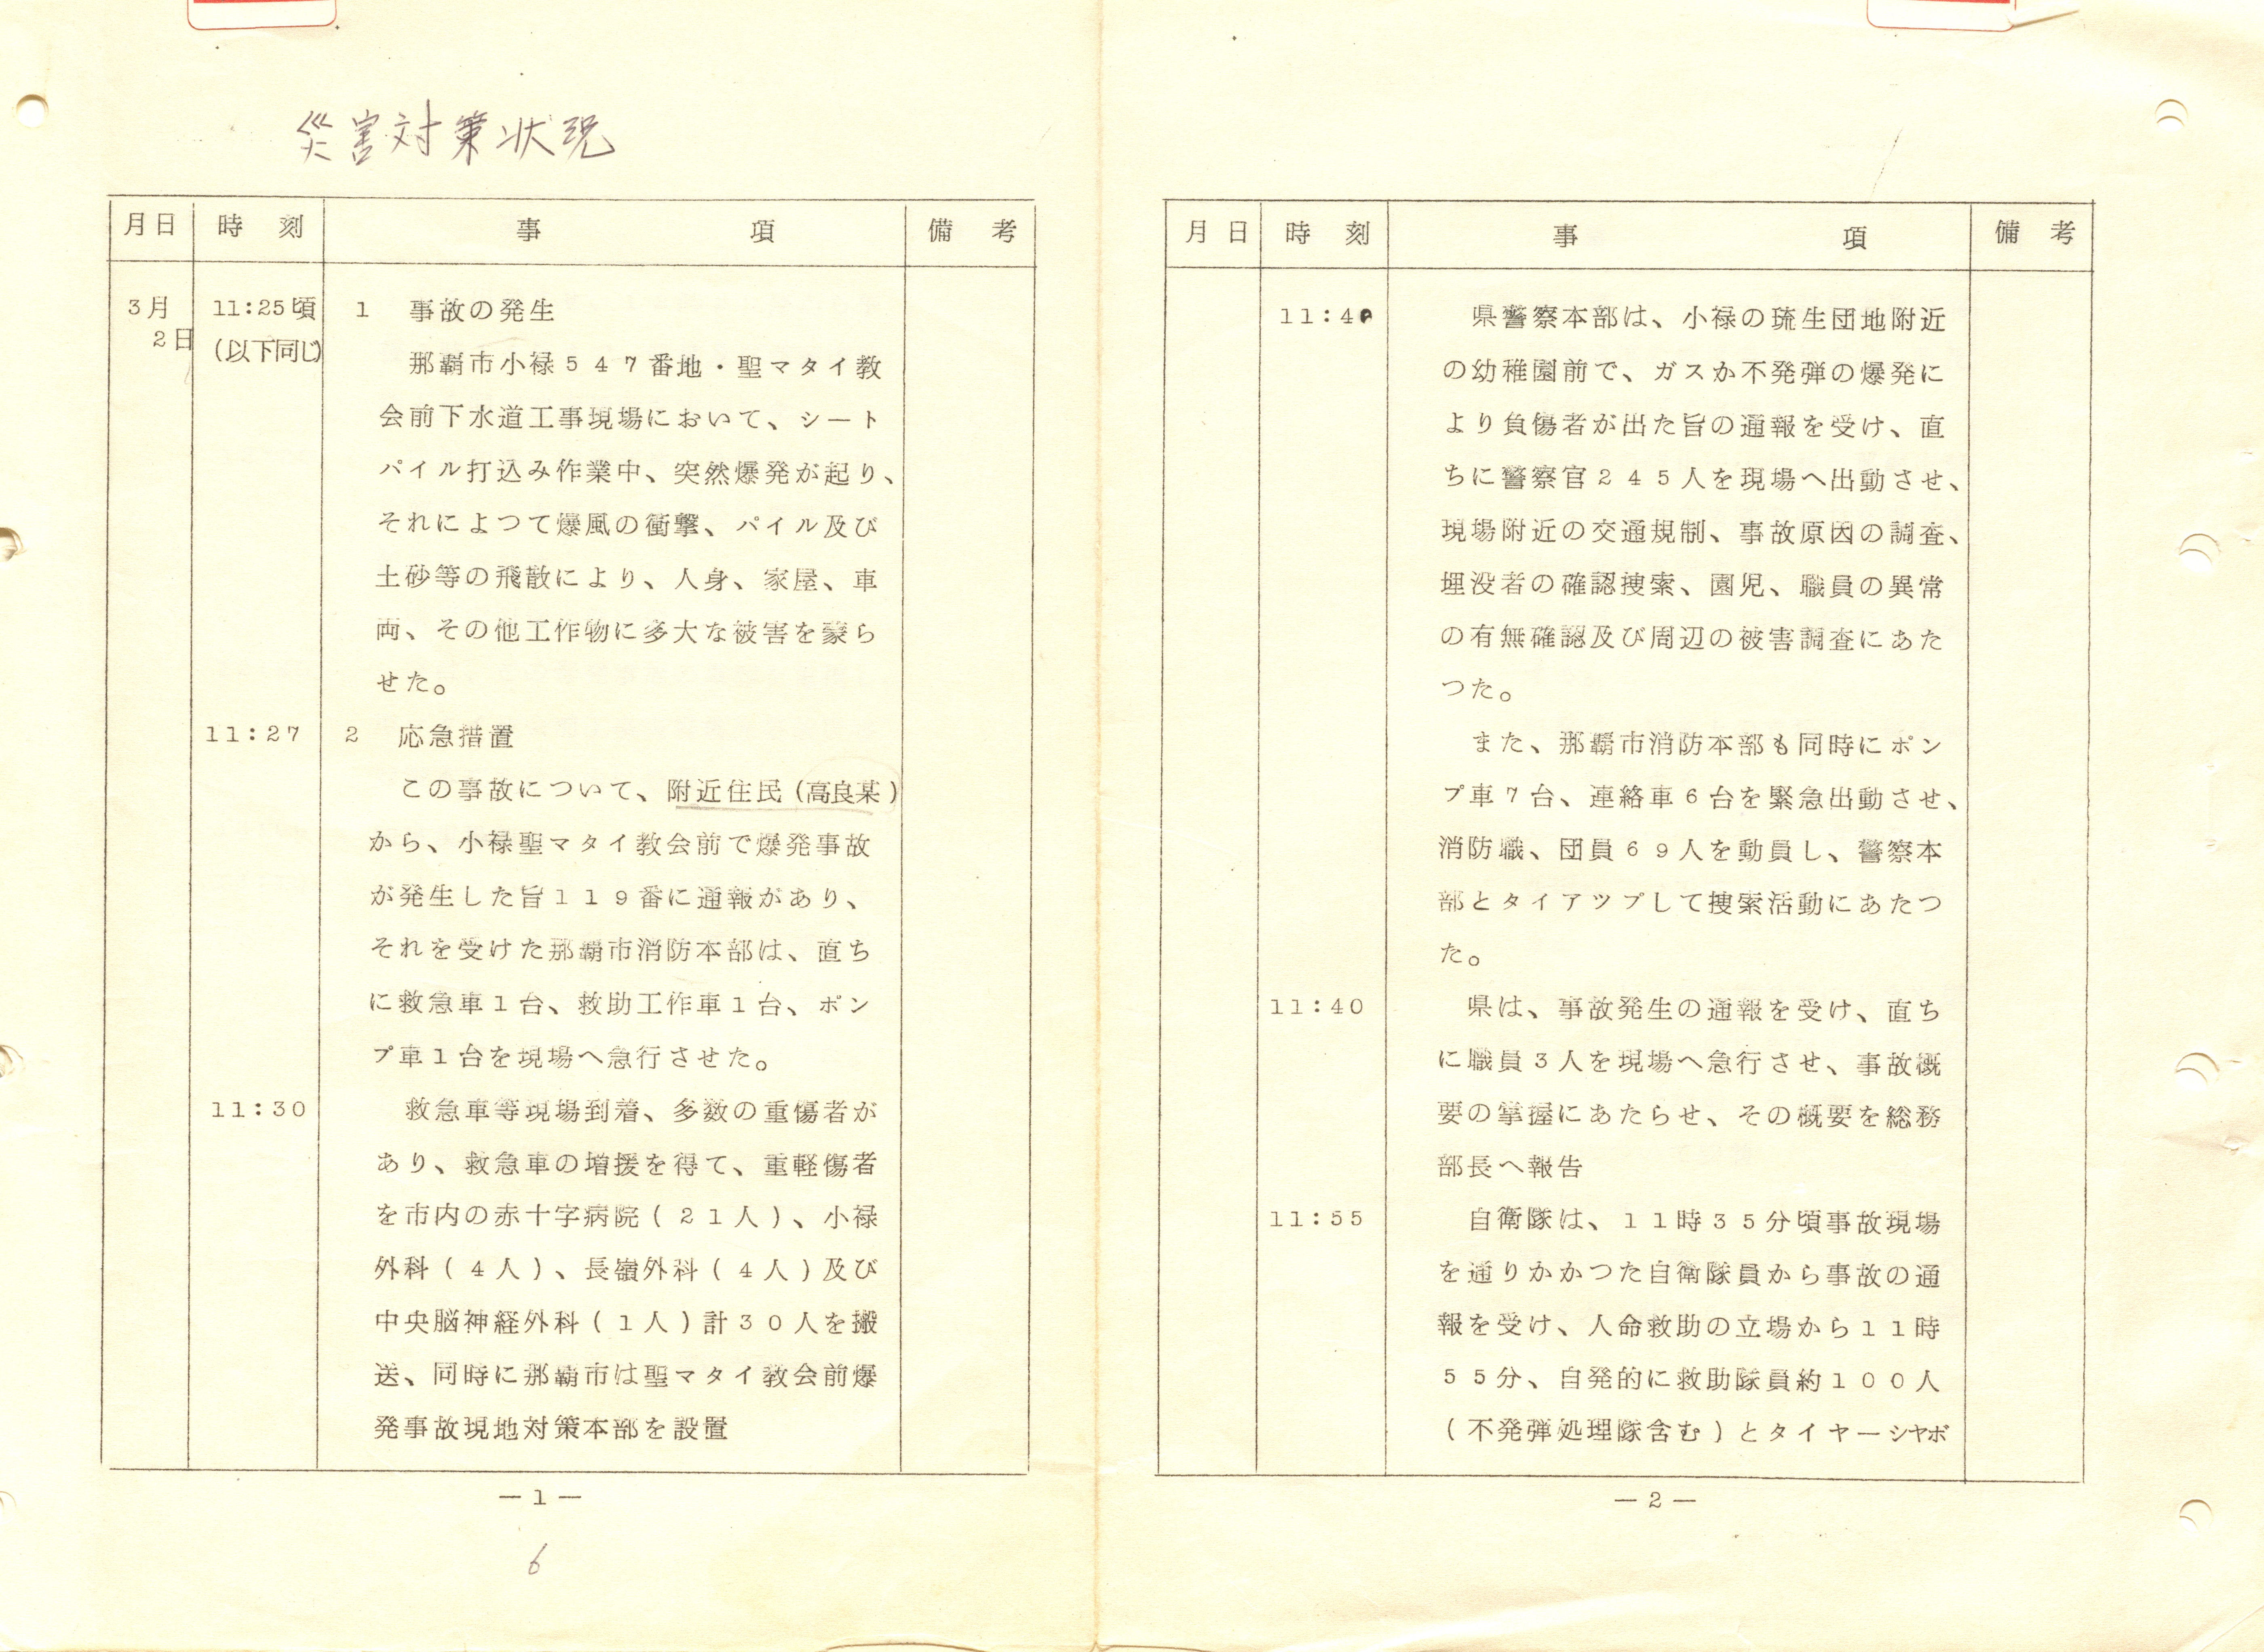 災害対策状況
月日 時刻 事項 備考
3月 11:25頃 1 事故の発生
2日 (以下同じ)
那覇市小禄547番地・聖マタイ教
会前下水道工事現場において、シート
パイル打込み作業中、突然爆発が起り、
それによつて爆風の衝撃、パイル及び
土砂等の飛散により、人身、家屋、車
両、その他工作物に多大な被害を蒙ら
せた。
11:27 2 応急措置
この事故について、附近住民(高良某)
から、小禄聖マタイ教会前で爆発事故
が発生した旨119番に通報があり、
それを受けた那覇市消防本部は、直ち
に救急車1台、救助工作車1台、ポン
プ車1台を現場へ急行させた。
11:30 救急車等現場到着、多数の重傷者が
あり、救急車の増援を得て、重軽傷者
を市内の赤十字病院(21人)、小禄
外科(4人)、長嶺外科(4人)及び
中央脳神経外科(1人)計30人を搬
送、同時に那覇市は聖マタイ教会前爆
発事故現地対策本部を設置
—1—
6
月日 時刻 事項 備考
11:40 県警察本部は、小禄の琉生団地附近
の幼稚園前で、ガスか不発弾の爆発に
より負傷者が出た旨の通報を受け、直
ちに警察官245人を現場へ出動させ、
現場附近の交通規制、事故原因の調査、
埋没者の確認捜索、園児、職員の異常
の有無確認及び周辺の被害調査にあた
つた。
また、那覇市消防本部も同時にポン
プ車7台、連絡車6台を緊急出動させ、
消防職、団員69人を動員し、警察本
部とタイアツプして捜索活動にあたつ
た。
11:40 県は、事故発生の通報を受け、直ち
に職員3人を現場へ急行させ、事故概
要の掌握にあたらせ、その概要を総務
部長へ報告
11:55 自衛隊は、11時35分頃事故現場
を通りかかつた自衛隊員から事故の通
報を受け、人命救助の立場から11時
55分、自発的に救助隊員約100人
(不発弾処理隊含む)とタイヤーシヤボ
—2—